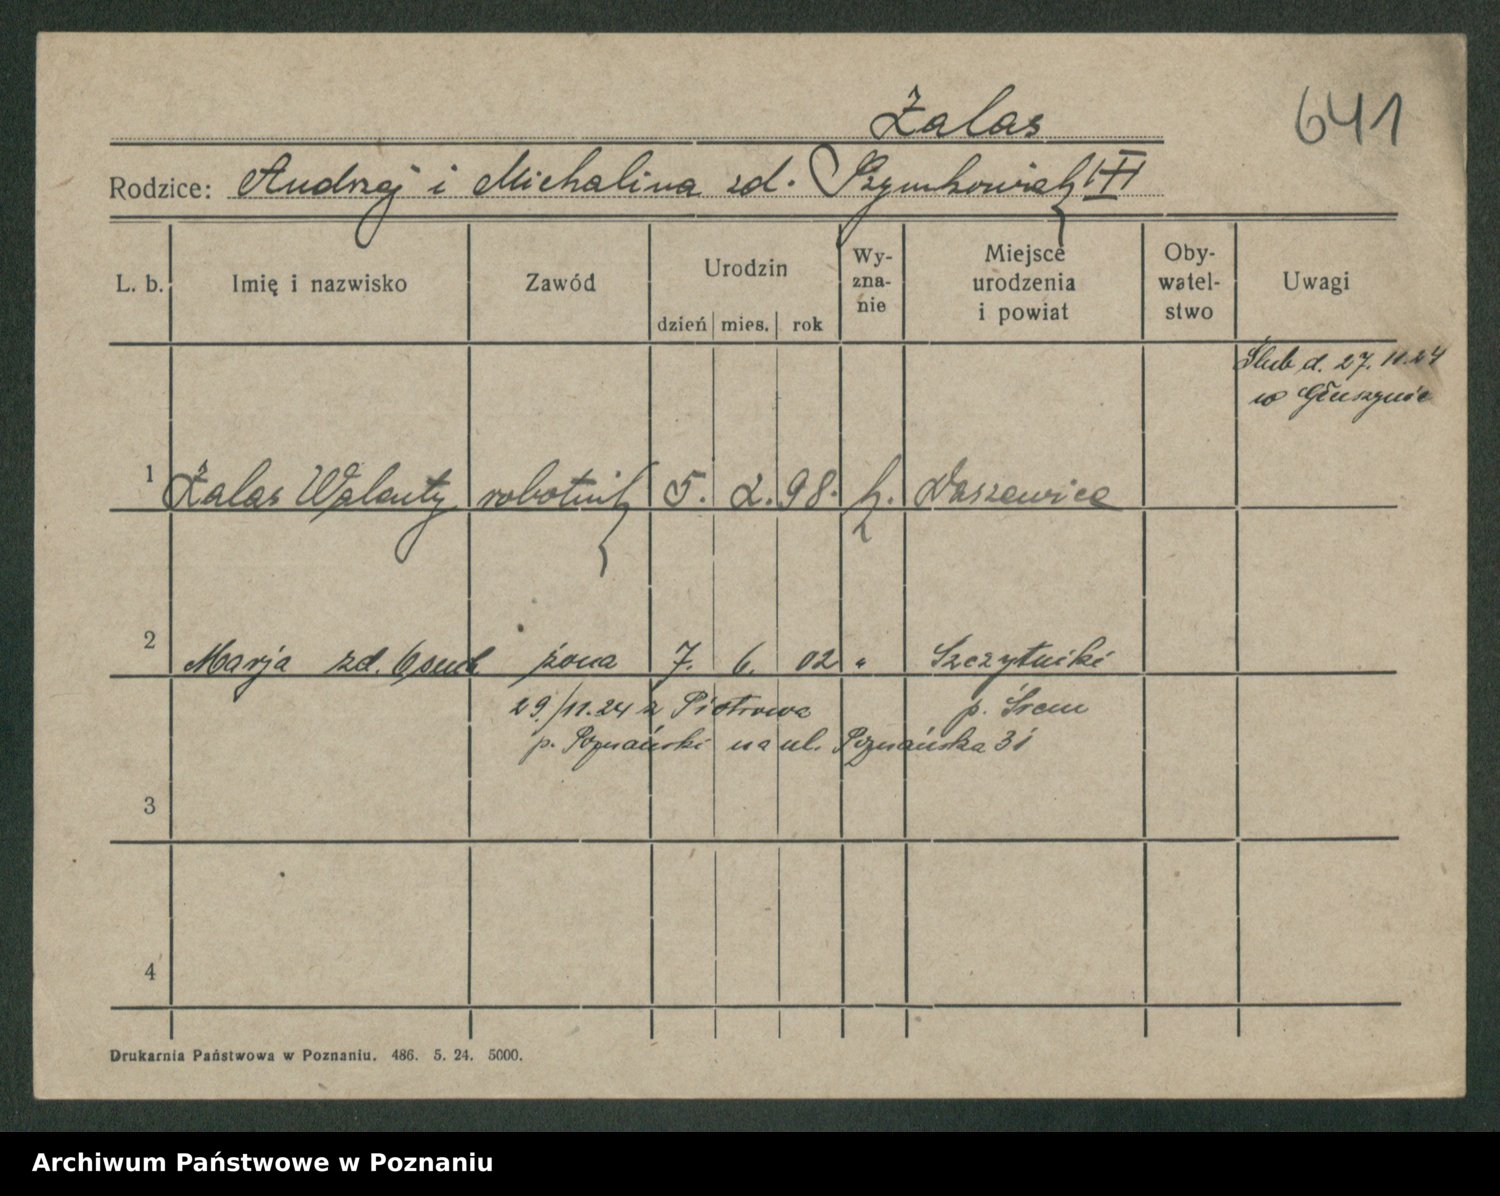 641
Żalas
Rodzice: Andrzej i Michalina zd. Szymkowiak
L. b. Imię i nazwisko Zawód Urodzin dzień mies. rok Wy-zna-nie Miejsce urodzenia i powiat Oby-watel-stwo Uwagi
Ślub d. 27.11.24
w Głuszynie
1 Żalas Walenty robotnik 5. 2. 98. k. Daszewice
2 Marja zd. żona 7. 6. 02 " Szczytniki
29/11.24 z Piotrowa p. Śrem
p. Poznański na ul. Poznańska 31
3
4
Drukarnia Państwowa w Poznaniu. 486. 5. 24. 5000.
Archiwum Państwowe w Poznaniu